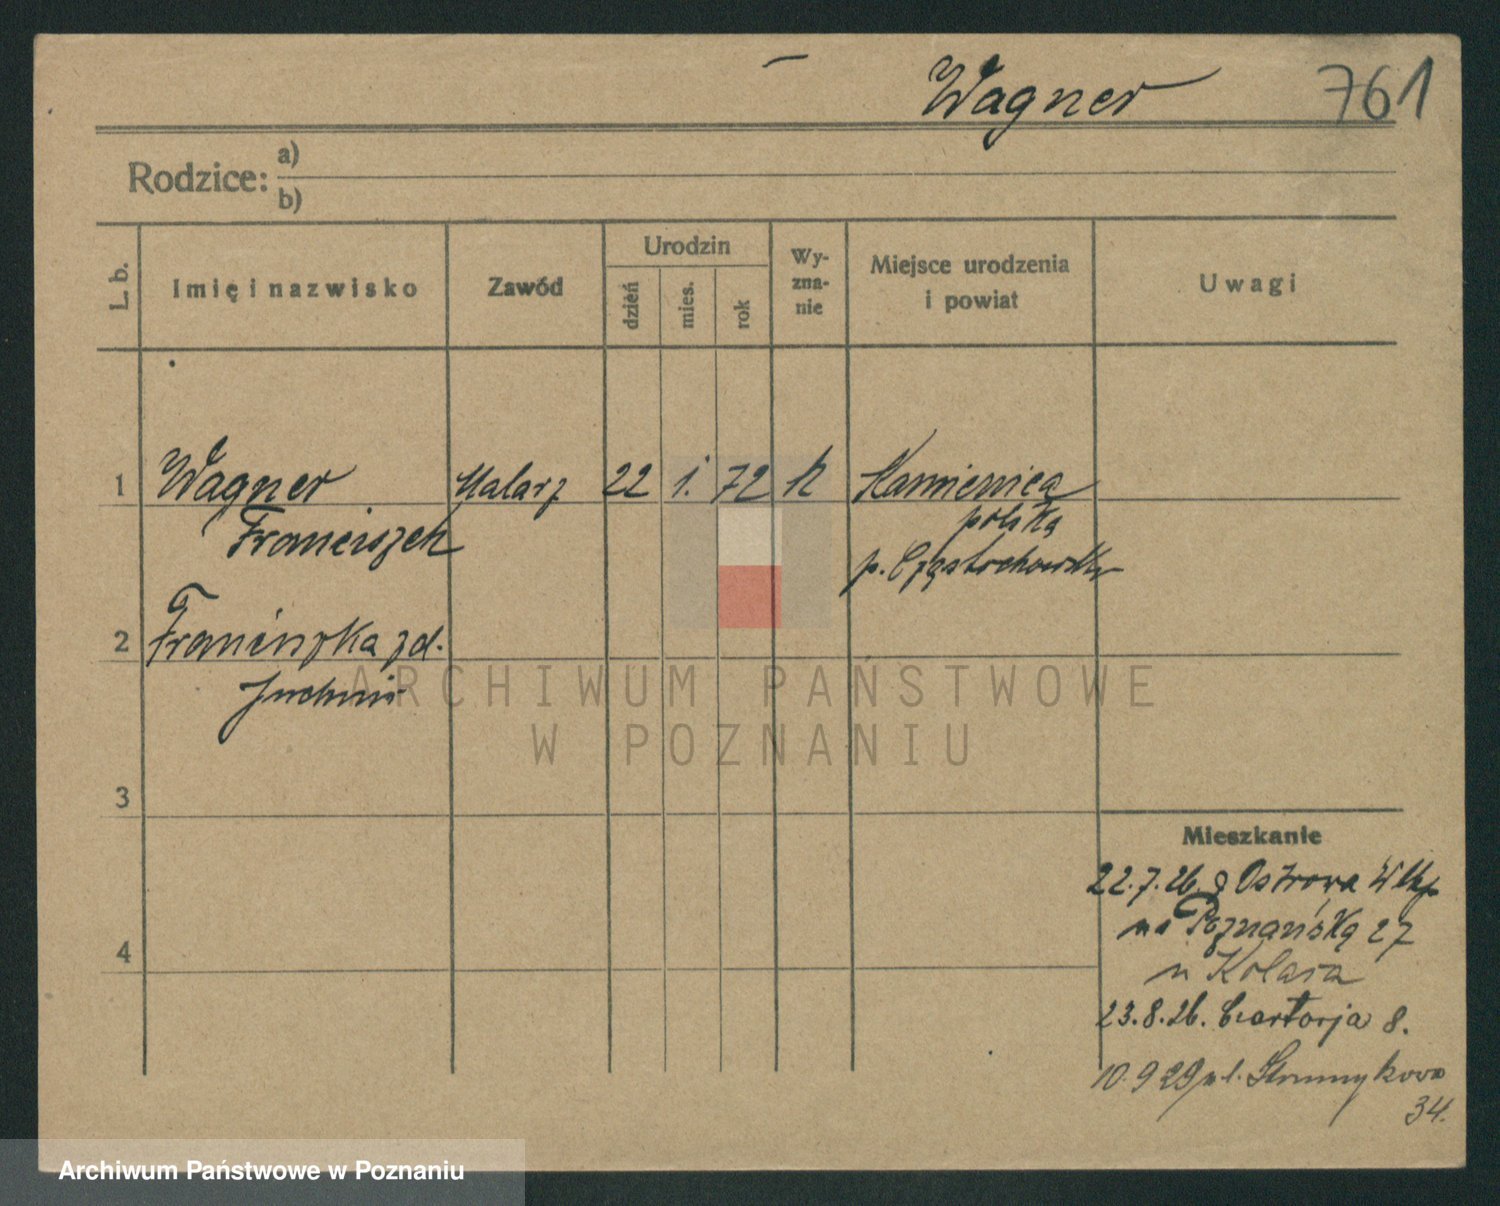 Wagner 761
Rodzice: a)
b)
L. b. Imię i nazwisko Zawód Urodzin dzień mies. rok Wy-zna-nie Miejsce urodzenia i powiat Uwagi
1 Wagner Malarz 22 1. 72 k Kamienica
Franciszek polska
p. Częstochowska
2 Franciszka zd.
3
4
Mieszkanie
22.7.26. z Ostrowa Wlkp
na Poznańską 27
u Kolasa
23.8.26. Czartorja 8.
10.9.29
34.
ARCHIWUM PAŃSTWOWE
W POZNANIU
Archiwum Państwowe w Poznaniu